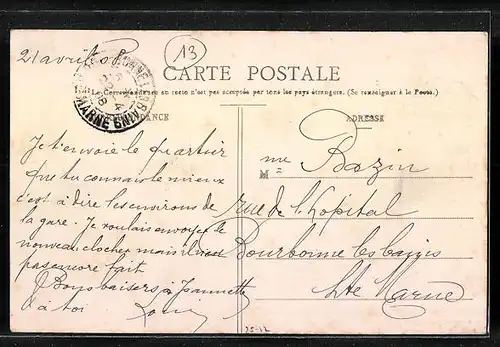 21 avril 08
13
CARTE POSTALE
La Correspondance au recto n'est pas acceptée par tous les pays étrangers. (Se renseigner à la Poste.)
MARNE
ADRESSE
Je t'envoie le quartier
que tu connais le mieux
c'est à dire les environs de
la gare. Je voulais envoyer le
nouveau clocher mais il n'est
pas encore fait
Bons baisers à Jeannette
à toi
M me Bazin
rue de l'hopital
Bourbonne les bains
Hte Marne